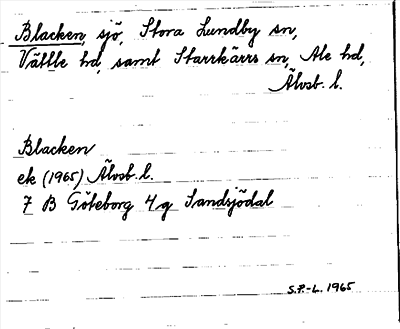 Blacken, sjö, Stora Lundby sn,
Vättle hd, samt Starrkärrs sn, Ale hd,
Älvsb. l.
Blacken
ek (1965) Älvsb. l.
7 B Göteborg 4g Sandsjödal
S.P.-L. 1965